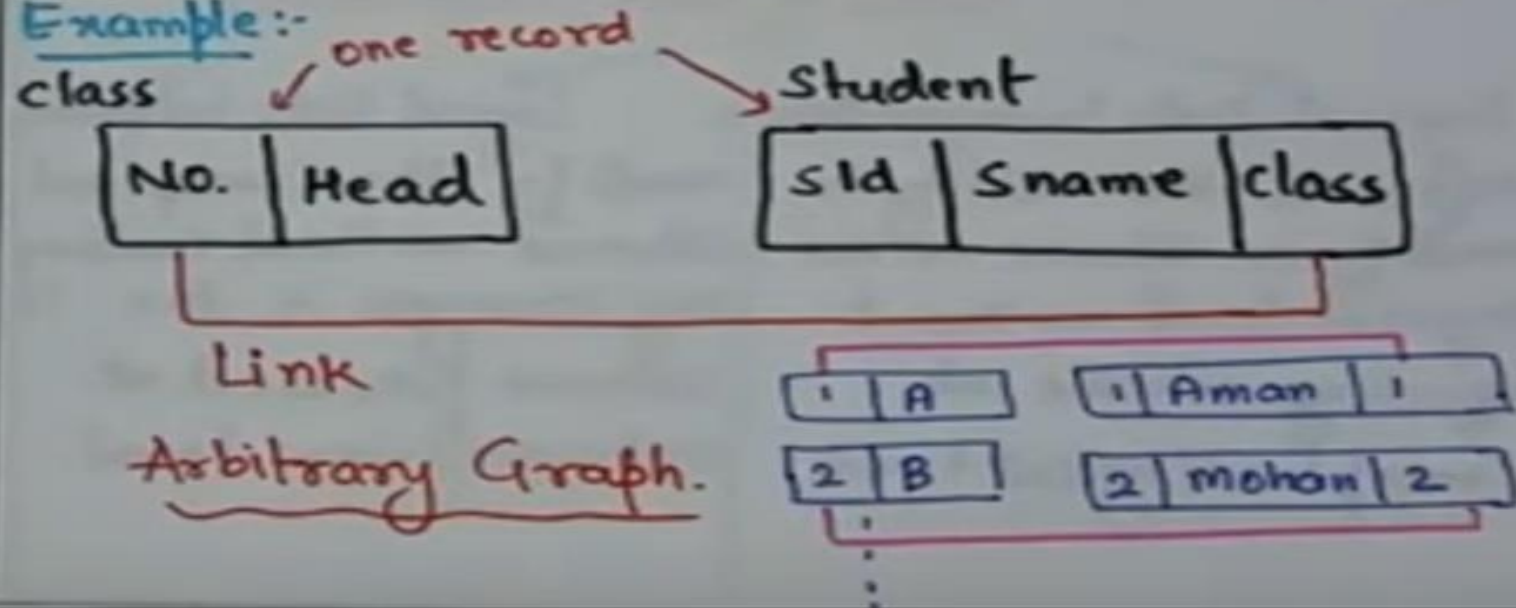 Example:-
one record
class
Student
No. Head
sId Sname class
Link
1 A 1 Aman 1
Arbitrary Graph.
2 B 2 mohan 2